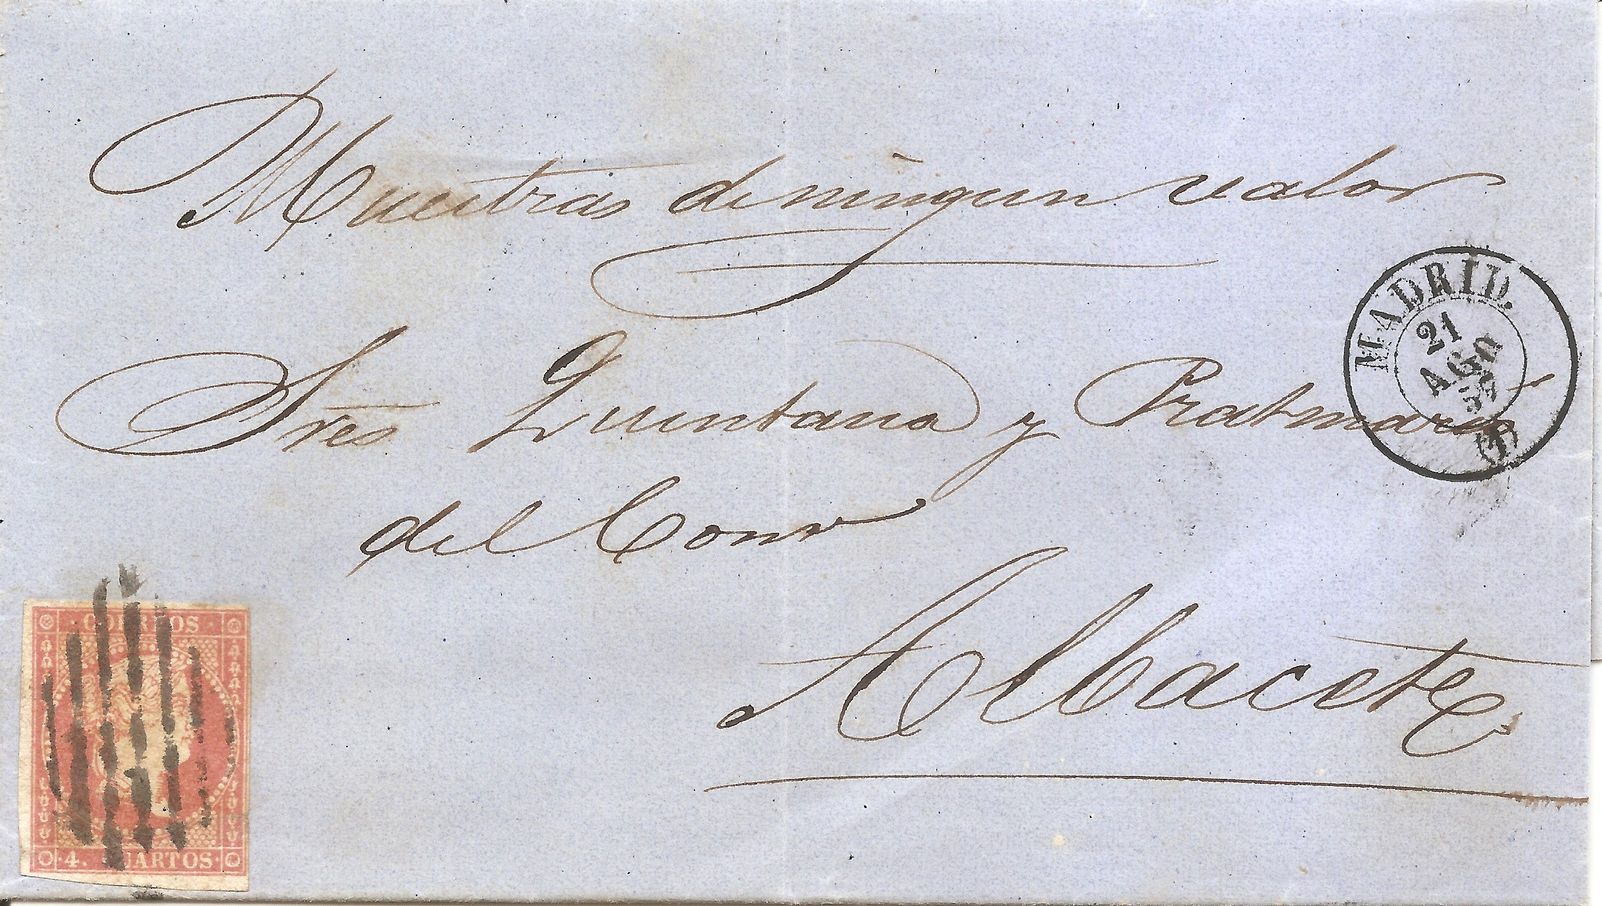 Muestras de ningun valor
Sres Quintana y Pratmarsó
del Comº
Albacete
MADRID.
21
AGO
57
(1)
CORREOS
4. CUARTOS